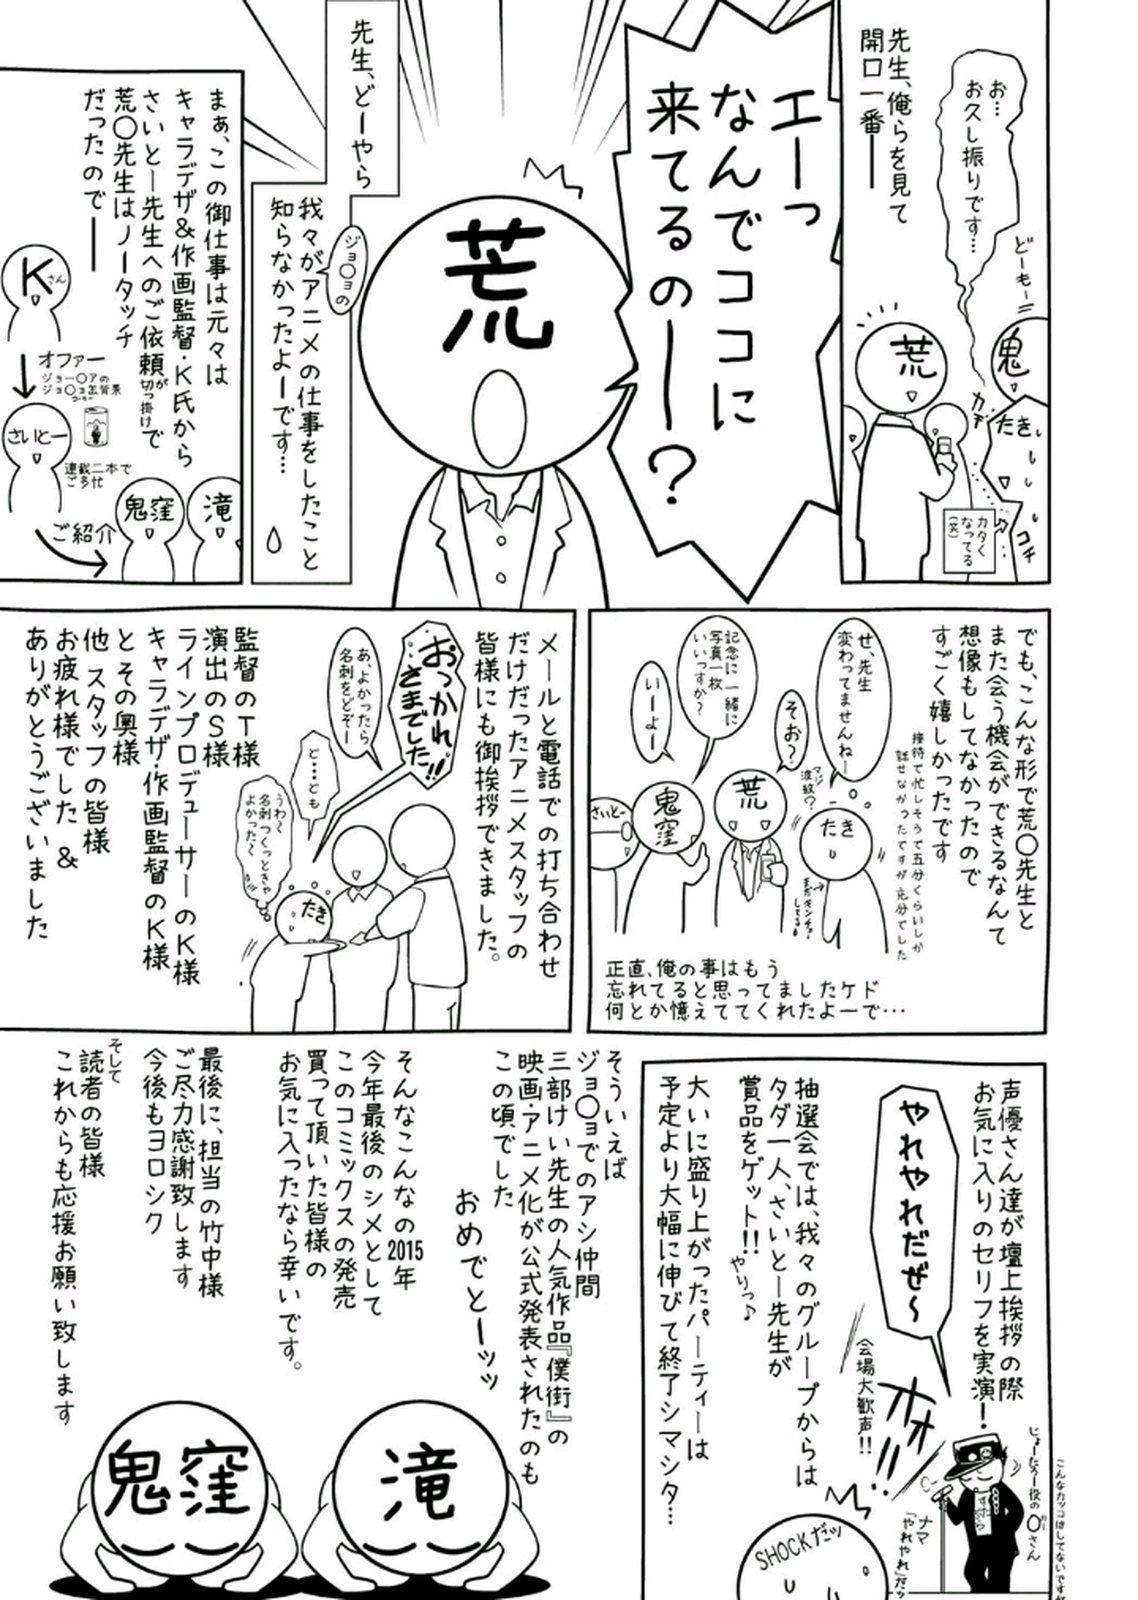 先生、俺らを見て
開口一番――
お…
お久し振りです…
どーもー
荒
鬼
たき
ガチ
コチ
カタく
なってる
(笑)
エーっ
なんでココに
来てるのー?
荒
先生、どーやら
我々がアニメの仕事をしたこと
ジョ〇ョの
知らなかったよーです…
まぁ、この御仕事は元々は
キャラデザ&作画監督・K氏から
さいとー先生へのご依頼が
切っ掛けで
荒〇先生はノータッチ
だったので――
Kさん
オファー
ジョー〇アの
ジョ〇ョ缶背景
さいとー
連載二本で
ご多忙
ご紹介
鬼窪
滝
でも、こんな形で荒〇先生と
また会う機会ができるなんて
想像もしてなかったので
すごく嬉しかったです
接待で忙しそうで五分くらいしか
話せなかったですが充分でした
せ、先生
変わってませんねー
マジ
波紋?
そお?
記念に一緒に
写真一枚
いいっすか?
いーよー
さいとー
鬼窪
荒
たき
まだキンチョー
してる
正直、俺の事はもう
忘れてると思ってましたケド
何とか憶えててくれたよーで…
メールと電話での打ち合わせ
だけだったアニメスタッフの
皆様にも御挨拶できました。
おっかれ
さまでした!!
あ、よかったら
名刺をどぞー
ど…ども
うわ〜
名刺つくっときゃ
よかった〜
たき
監督のT様
演出のS様
ラインプロデューサーのK様
キャラデザ・作画監督のK様
とその奥様
他スタッフの皆様
お疲れ様でした&
ありがとうございました
声優さん達が壇上挨拶の際
お気に入りのセリフを実演!
やれやれだぜ〜
じょーたろー役のOさん
こんなカッコはしてないですが
ナマ
「やれやれ」だッ
オオオ!!
会場大歓声!!
抽選会では、我々のグループからは
タダ一人、さいとー先生が
賞品をゲット!!
やりっ♪
SHOCKだッ
大いに盛り上がったパーティーは
予定より大幅に伸びて終了シマシタ…
そういえば
ジョ〇ョでのアシ仲間
三部けい先生の人気作品『僕街』の
映画・アニメ化が公式発表されたのも
この頃でした
おめでとーッッ
そんなこんなの2015年
今年最後のシメとして
このコミックスの発売
買って頂いた皆様の
お気に入ったなら幸いです。
最後に、担当の竹中様
ご尽力感謝致します
今後もヨロシク
そして
読者の皆様
これからも応援お願い致します
鬼窪
滝